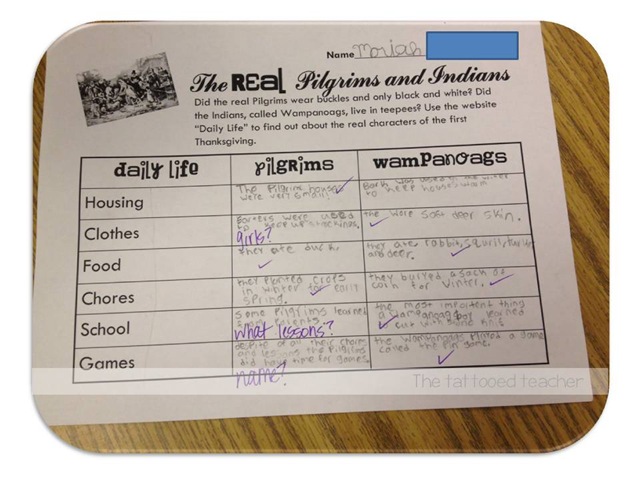 Name Moriah
The REAL Pilgrims and Indians
Did the real Pilgrims wear buckles and only black and white? Did
the Indians, called Wampanoags, live in teepees? Use the website
"Daily Life" to find out about the real characters of the first
Thanksgiving.
daily life pilgrims wampanoags
Housing
The Pilgrims house
were very small!
Bark was used in the winter
to keep houses warm
Clothes
garters were used
to keep up stockings.
girls?
the wore soft deer skin.
Food
they ate duck,
they ate rabbit,
and deer.
Chores
they planted crops
in winter for early
spring.
they burryed a sack of
corn for winter.
School
some pilgrims learned
from parents.
what lessons?
the most importent thing
a wampanoag boy learned
Games
despite of all their chores
and lessons the Pilgrims
did have time for games.
name?
the wampanoags played a game
called the game.
The tattooed teacher